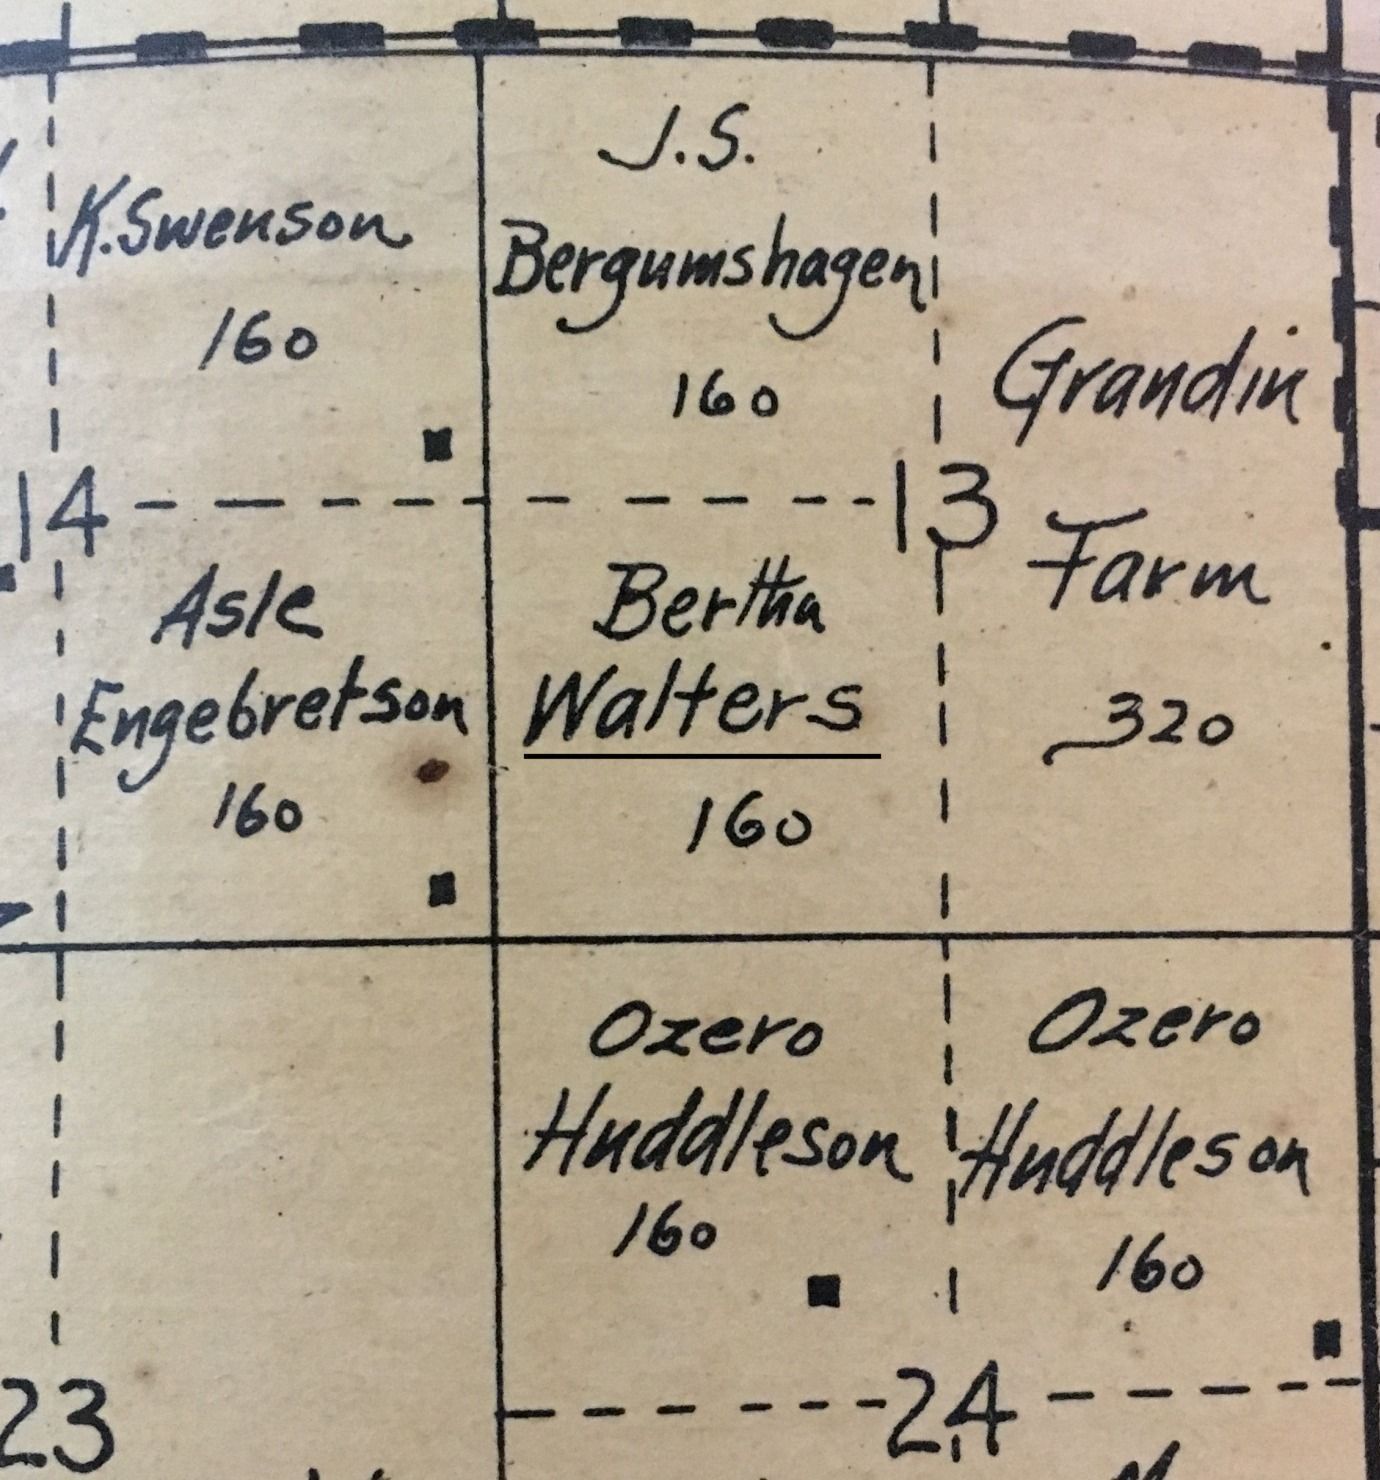 J.S.
K.Swenson
Bergumshagen
160
160
Grandin
14
13
Farm
Asle
Bertha
Engebretson
Walters
320
160
160
Ozero
Ozero
Huddleson
Huddleson
160
160
23
24